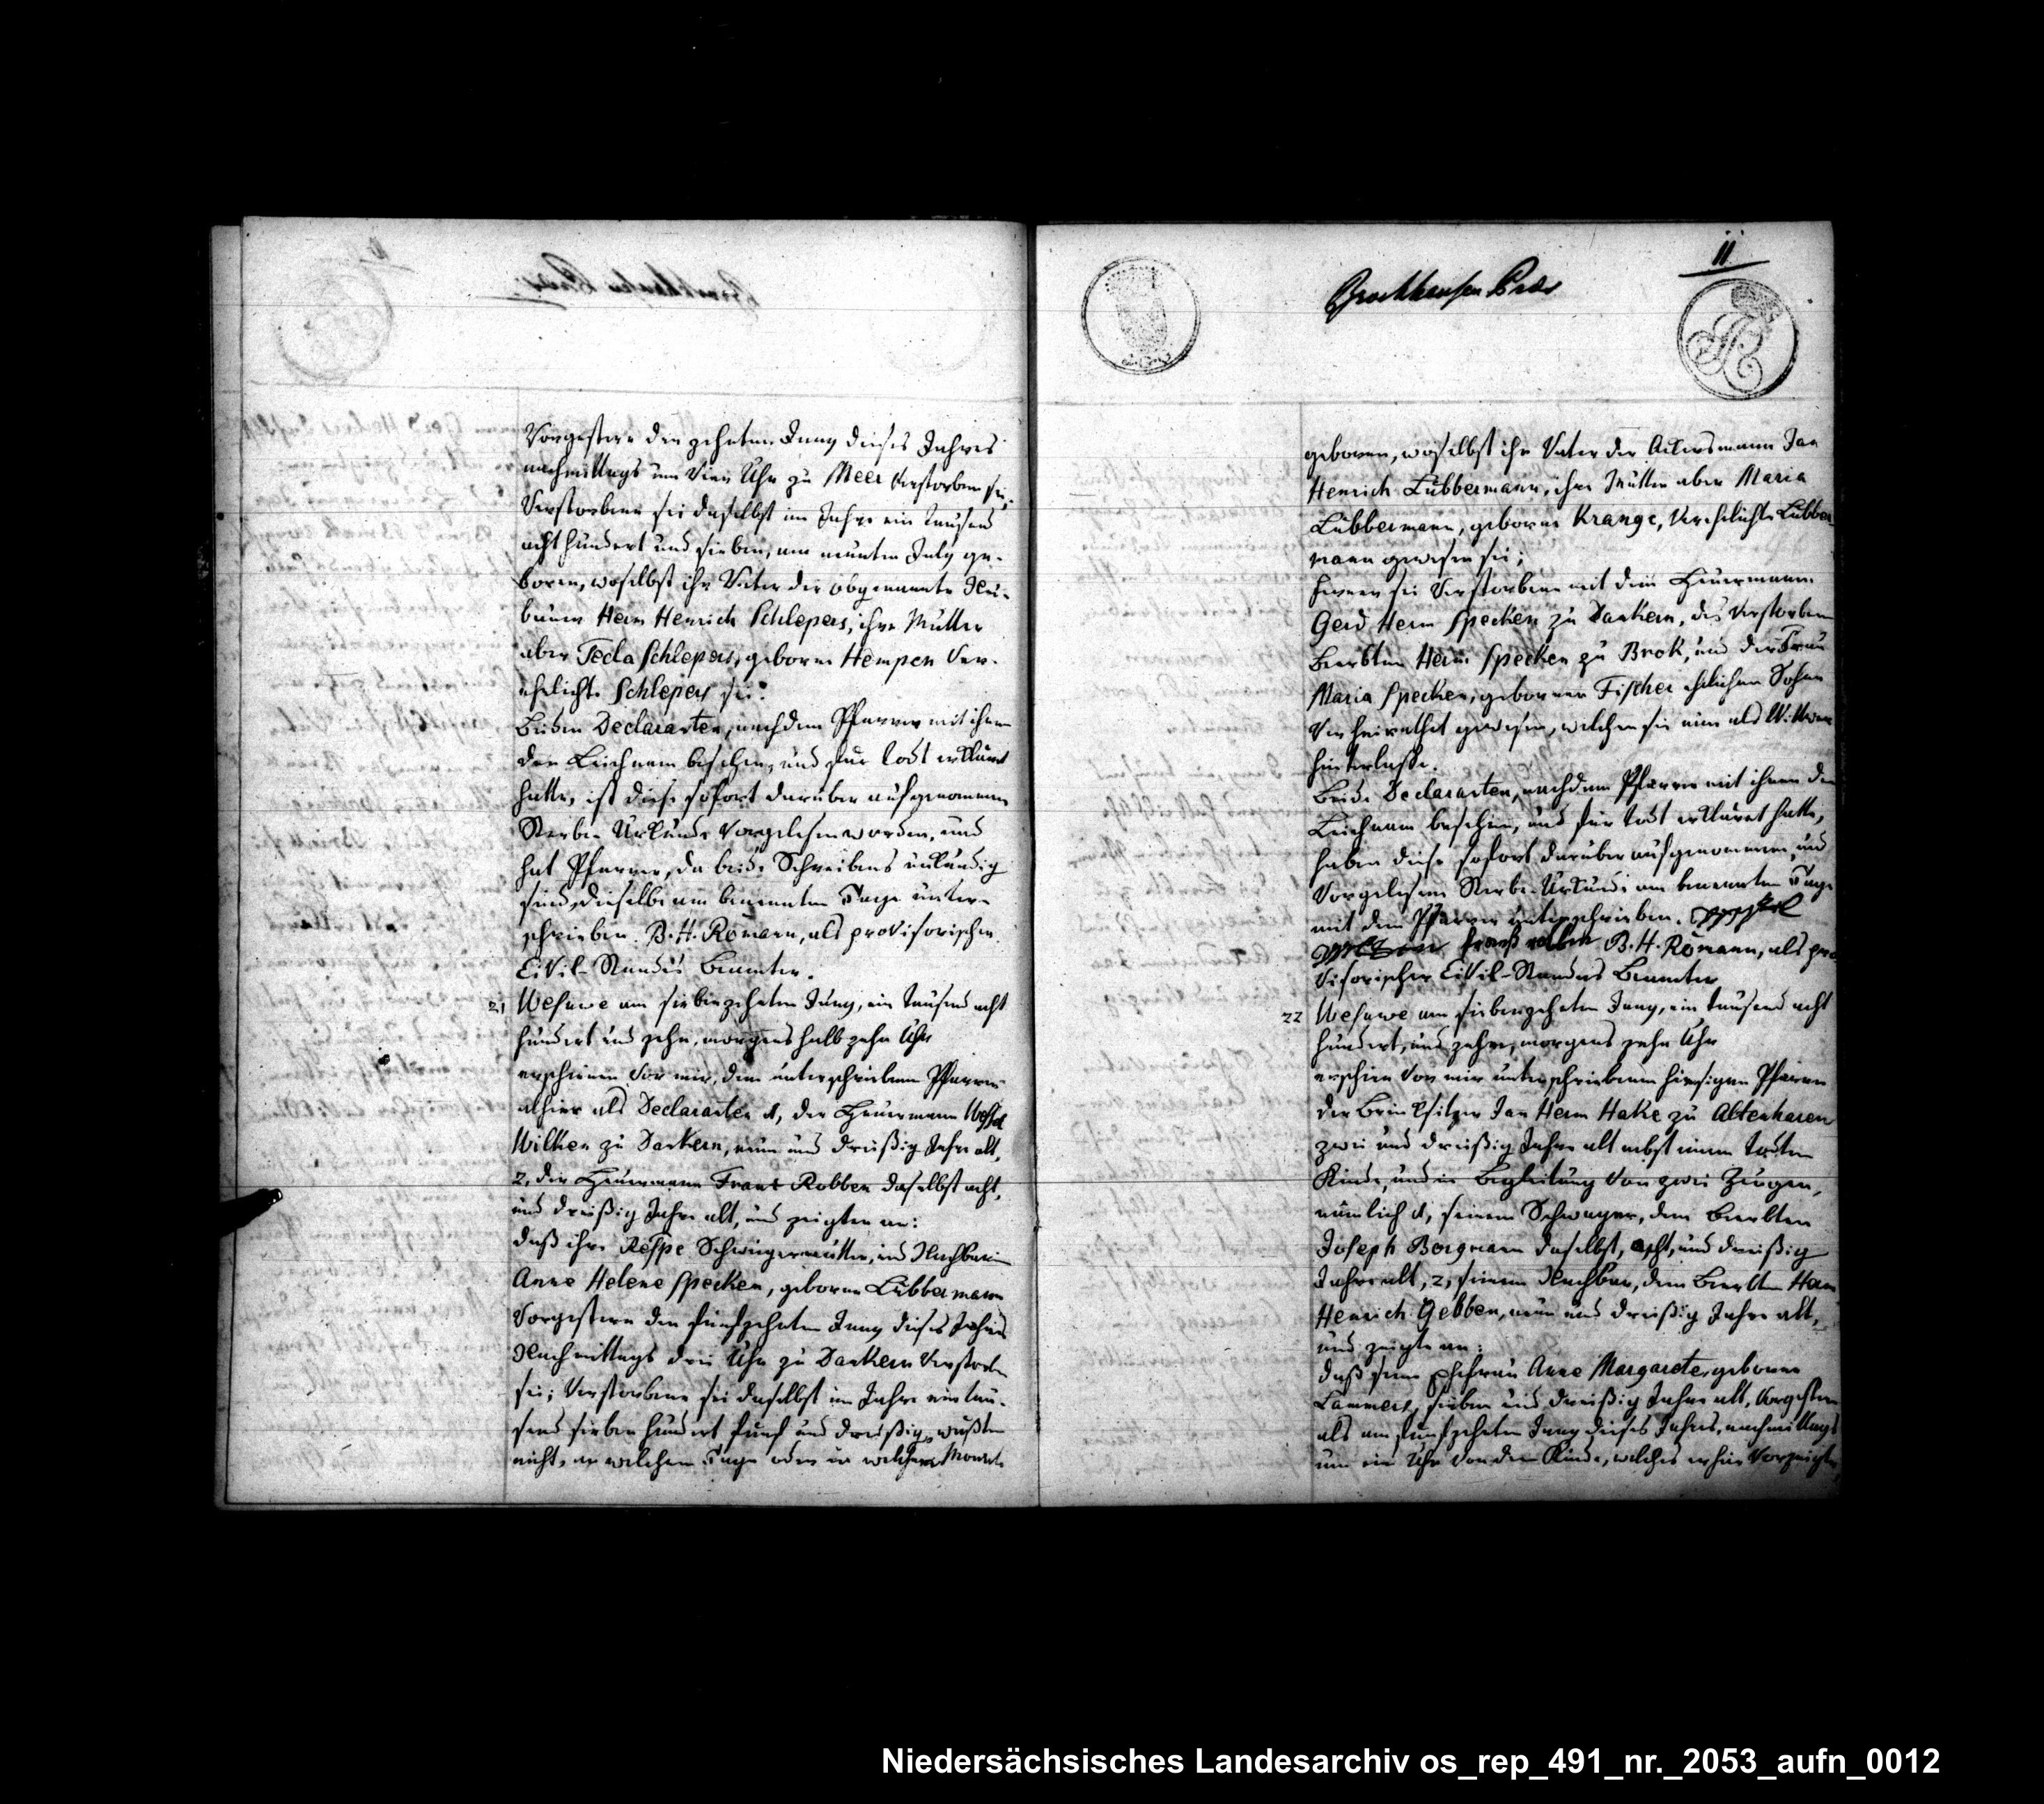 Vorgestern den zehnten Juny dieses Jahres
nachmittags um Vier Uhr zu Meer Verstorben sei;
Verstorbene sei daselbst im Jahre ein tausend
acht hundert und sieben, am neunten July ge-
boren, woselbst ihr Vater der obgenannte Neu-
bauer Herm Henrich Schlepers, ihre Mutter
aber Tecla Schlepers, geborne Hempen Ver-
ehelichte Schlepers sei.
Beiden Declaranten, nachdem Pfarrer mit ihnen
den Leichnam besehen, und für todt erklärt
hatte, ist diese sofort darüber aufgenommene
Sterbe-Urkunde Vorgelesen worden, und
hat Pfarrer, da beide Schreibens unkündig
sind, dieselbe am benannten Tage unter-
schrieben. B. H. Römann, als provisorischer
Civil-Standes Beamter.
21 Wesuwe am siebenzehnten Juny, ein tausend acht
hundert und zehn, morgens halb zehn Uhr
erschienen Vor mir, dem unterschriebenen Pfarrer
alhier als Declaranten 1, der Heuermann Wessel
Wilken zu Dankern, neun und dreißig Jahre alt,
2, der Heuermann Frans Robben daselbst acht,
und dreißig Jahre alt, und zeigten an:
daß ihre Respe Schwiegermutter, und Nachbarin
Anne Helene Specken, geborne Lübbermann
Vorgestern den fünfzehnten Juny dieses Jahres
Nachmittags drei Uhr zu Dankern Verstorben
sei; Verstorbene sei daselbst im Jahre ein tau-
send sieben hundert fünf und dreißig, wußten
nicht, an welchem Tage oder in welchem Monate
11
Brockhausen Präs
geboren, woselbst ihr Vater der Ackersmann Jan
Henrich Lübbermann, ihre Mutter aber Maria
Lübbermann, geborne Krange, Verehelichte Lübber
mann gewesen sei;
ferner sei Verstorbene mit dem Heuermann
Gerd Herm Specken zu Dankern, des Verstorbenen
Beerbten Herm Specken zu Brok, und der Frau
Maria Specken, geborner Fischer ehelichen Sohne
Verheirathet gewesen, welchen sie nun als Wittwer
hinterlasse.
Beide Declaranten, nachdem Pfarrer mit ihnen den
Leichnam besehen, und für todt erkläret hatte,
haben diese sofort darüber aufgenommene, und
Vorgelesene Sterbe-Urkunde am benannten Tage
mit dem Pfarrer unterschrieben.
B. H. Römann, als pro
Visorischer Civil-Standes Beamter
22 Wesuwe am siebenzehnten Juny, ein tausend acht
hundert, und zehn, morgens zehn Uhr
erschien Vor mir unterschriebenen hiesigen Pfarrer
der Brinksitzer Jan Herm Hake zu Altenharen
zwei und dreißig Jahre alt nebst einem todten
Kinde, und in Begleitung Von zwei Zeugen,
nämlich 1, seinem Schwager, dem Beerbten
Joseph Borgmann daselbst, acht, und dreißig
Jahre alt, 2, seinem Nachbar, dem Beerbten Herm
Henrich Gebben, neun und dreißig Jahre alt,
und zeigte an:
daß seine Ehefrau Anne Margarete, geborne
Lammers, sieben und dreißig Jahre alt, Vorgestern
als am fünfzehnten Juny dieses Jahres, nachmittags
um ein Uhr Von dem Kinde, welches er hier Vorzeigte,
Niedersächsisches Landesarchiv os_rep_491_nr._2053_aufn_0012